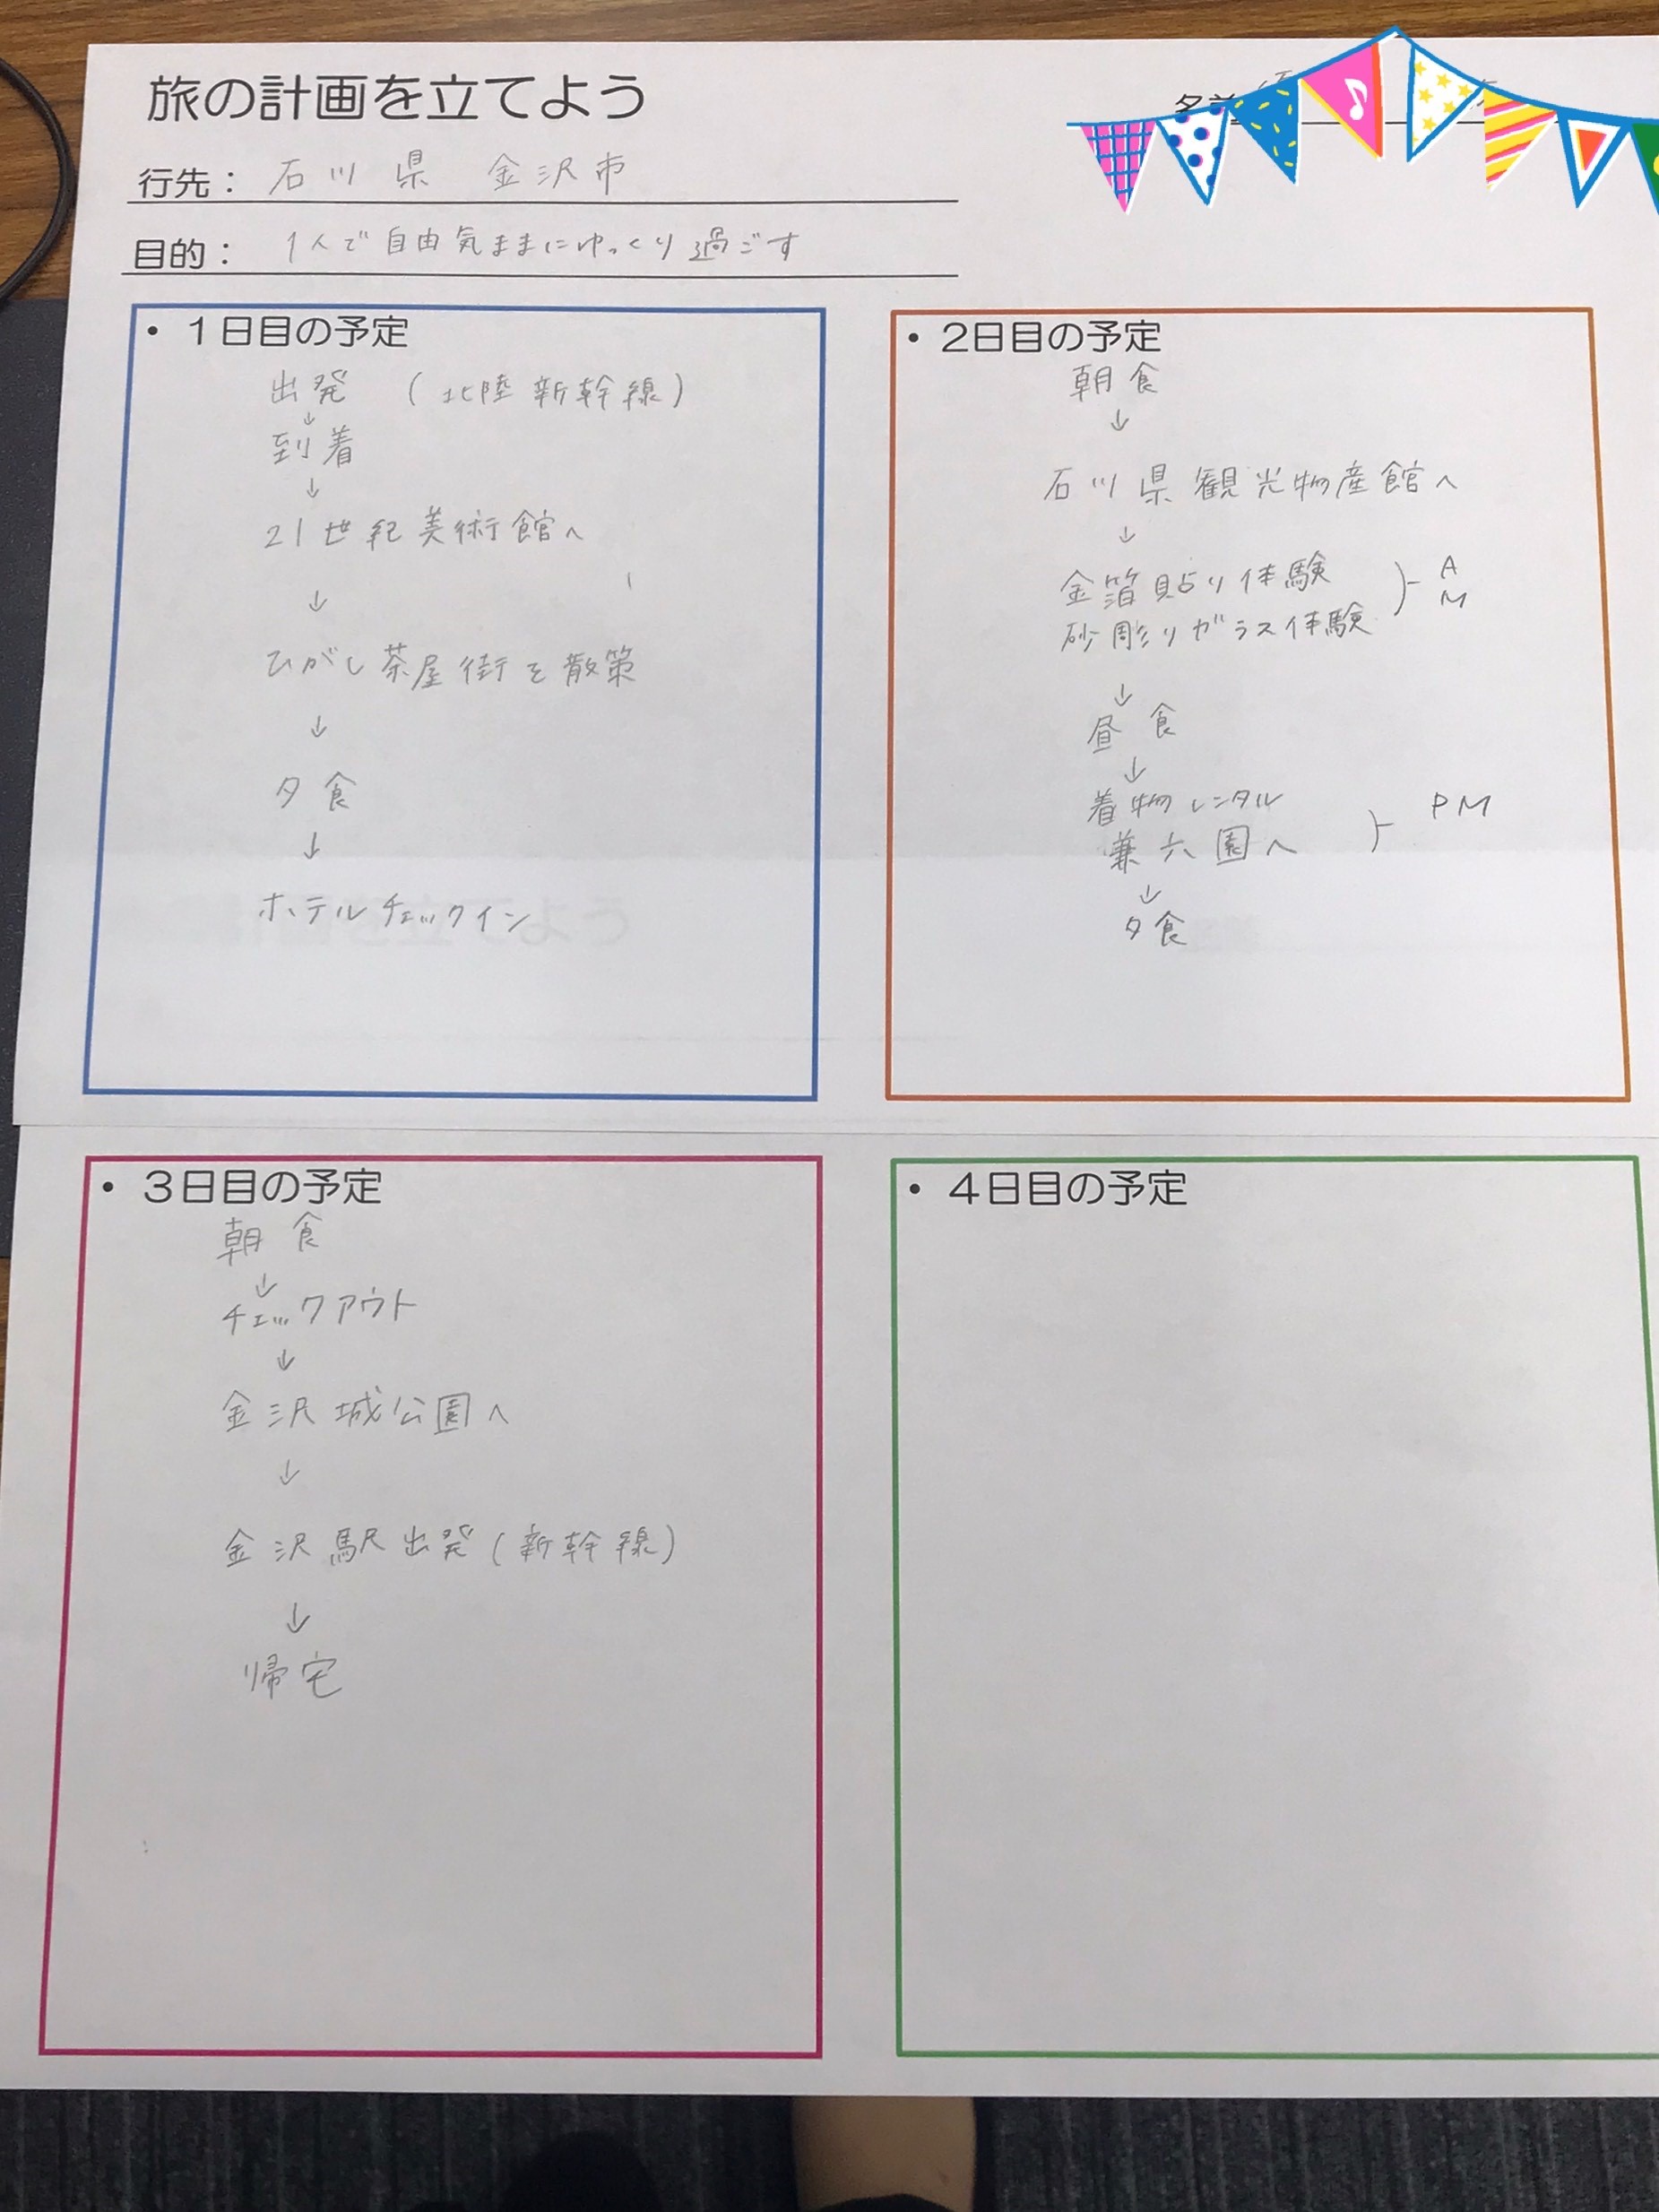 旅の計画を立てよう
名前
行先： 石川県 金沢市
目的： 1人で自由気ままにゆっくり過ごす
・１日目の予定
出発 （北陸新幹線）
↓
到着
↓
21世紀美術館へ
↓
ひがし茶屋街を散策
↓
夕食
↓
ホテルチェックイン
・2日目の予定
朝食
↓
石川県観光物産館へ
↓
金箔貼り体験
砂彫りガラス体験
AM
↓
昼食
↓
着物レンタル
兼六園へ
PM
↓
夕食
・３日目の予定
朝食
↓
チェックアウト
↓
金沢城公園へ
↓
金沢駅出発（新幹線）
↓
帰宅
・４日目の予定